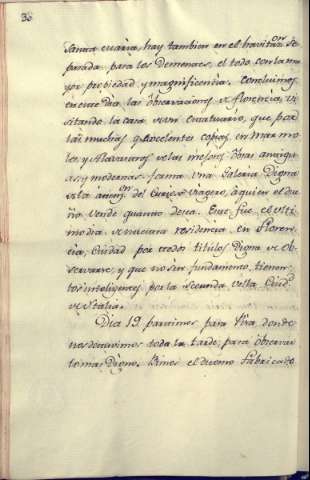 38
hay tambien en el haviton se
parada para los Dementes, el todo con la ma
yor propiedad y magnificencia. Concluimos
en este Dia las observaciones de florencia, vi
sitando la casa de un estatuario, que por
las muchas y excelentes copias en Mar mo
les, y Alavastros de las mejores obras antiguas
y modernas forma una Galeria Digna
de la atenon del Curioso Viagero, a quien el due
ño vende quanto desea. Este fue el ulti
mo dia de nuestra residencia en Floren
cia, Ciudad por todos titulos Digna de Ob
servarse, y que no sin fundamento, tienen
los inteligentes por la segunda de la Ciudd
de Italia.
Dia 19. partimos para Pisa, donde
nos detuvimos toda la tarde, para observar
lo mas Digno. Vimos el Duomo Fabricado